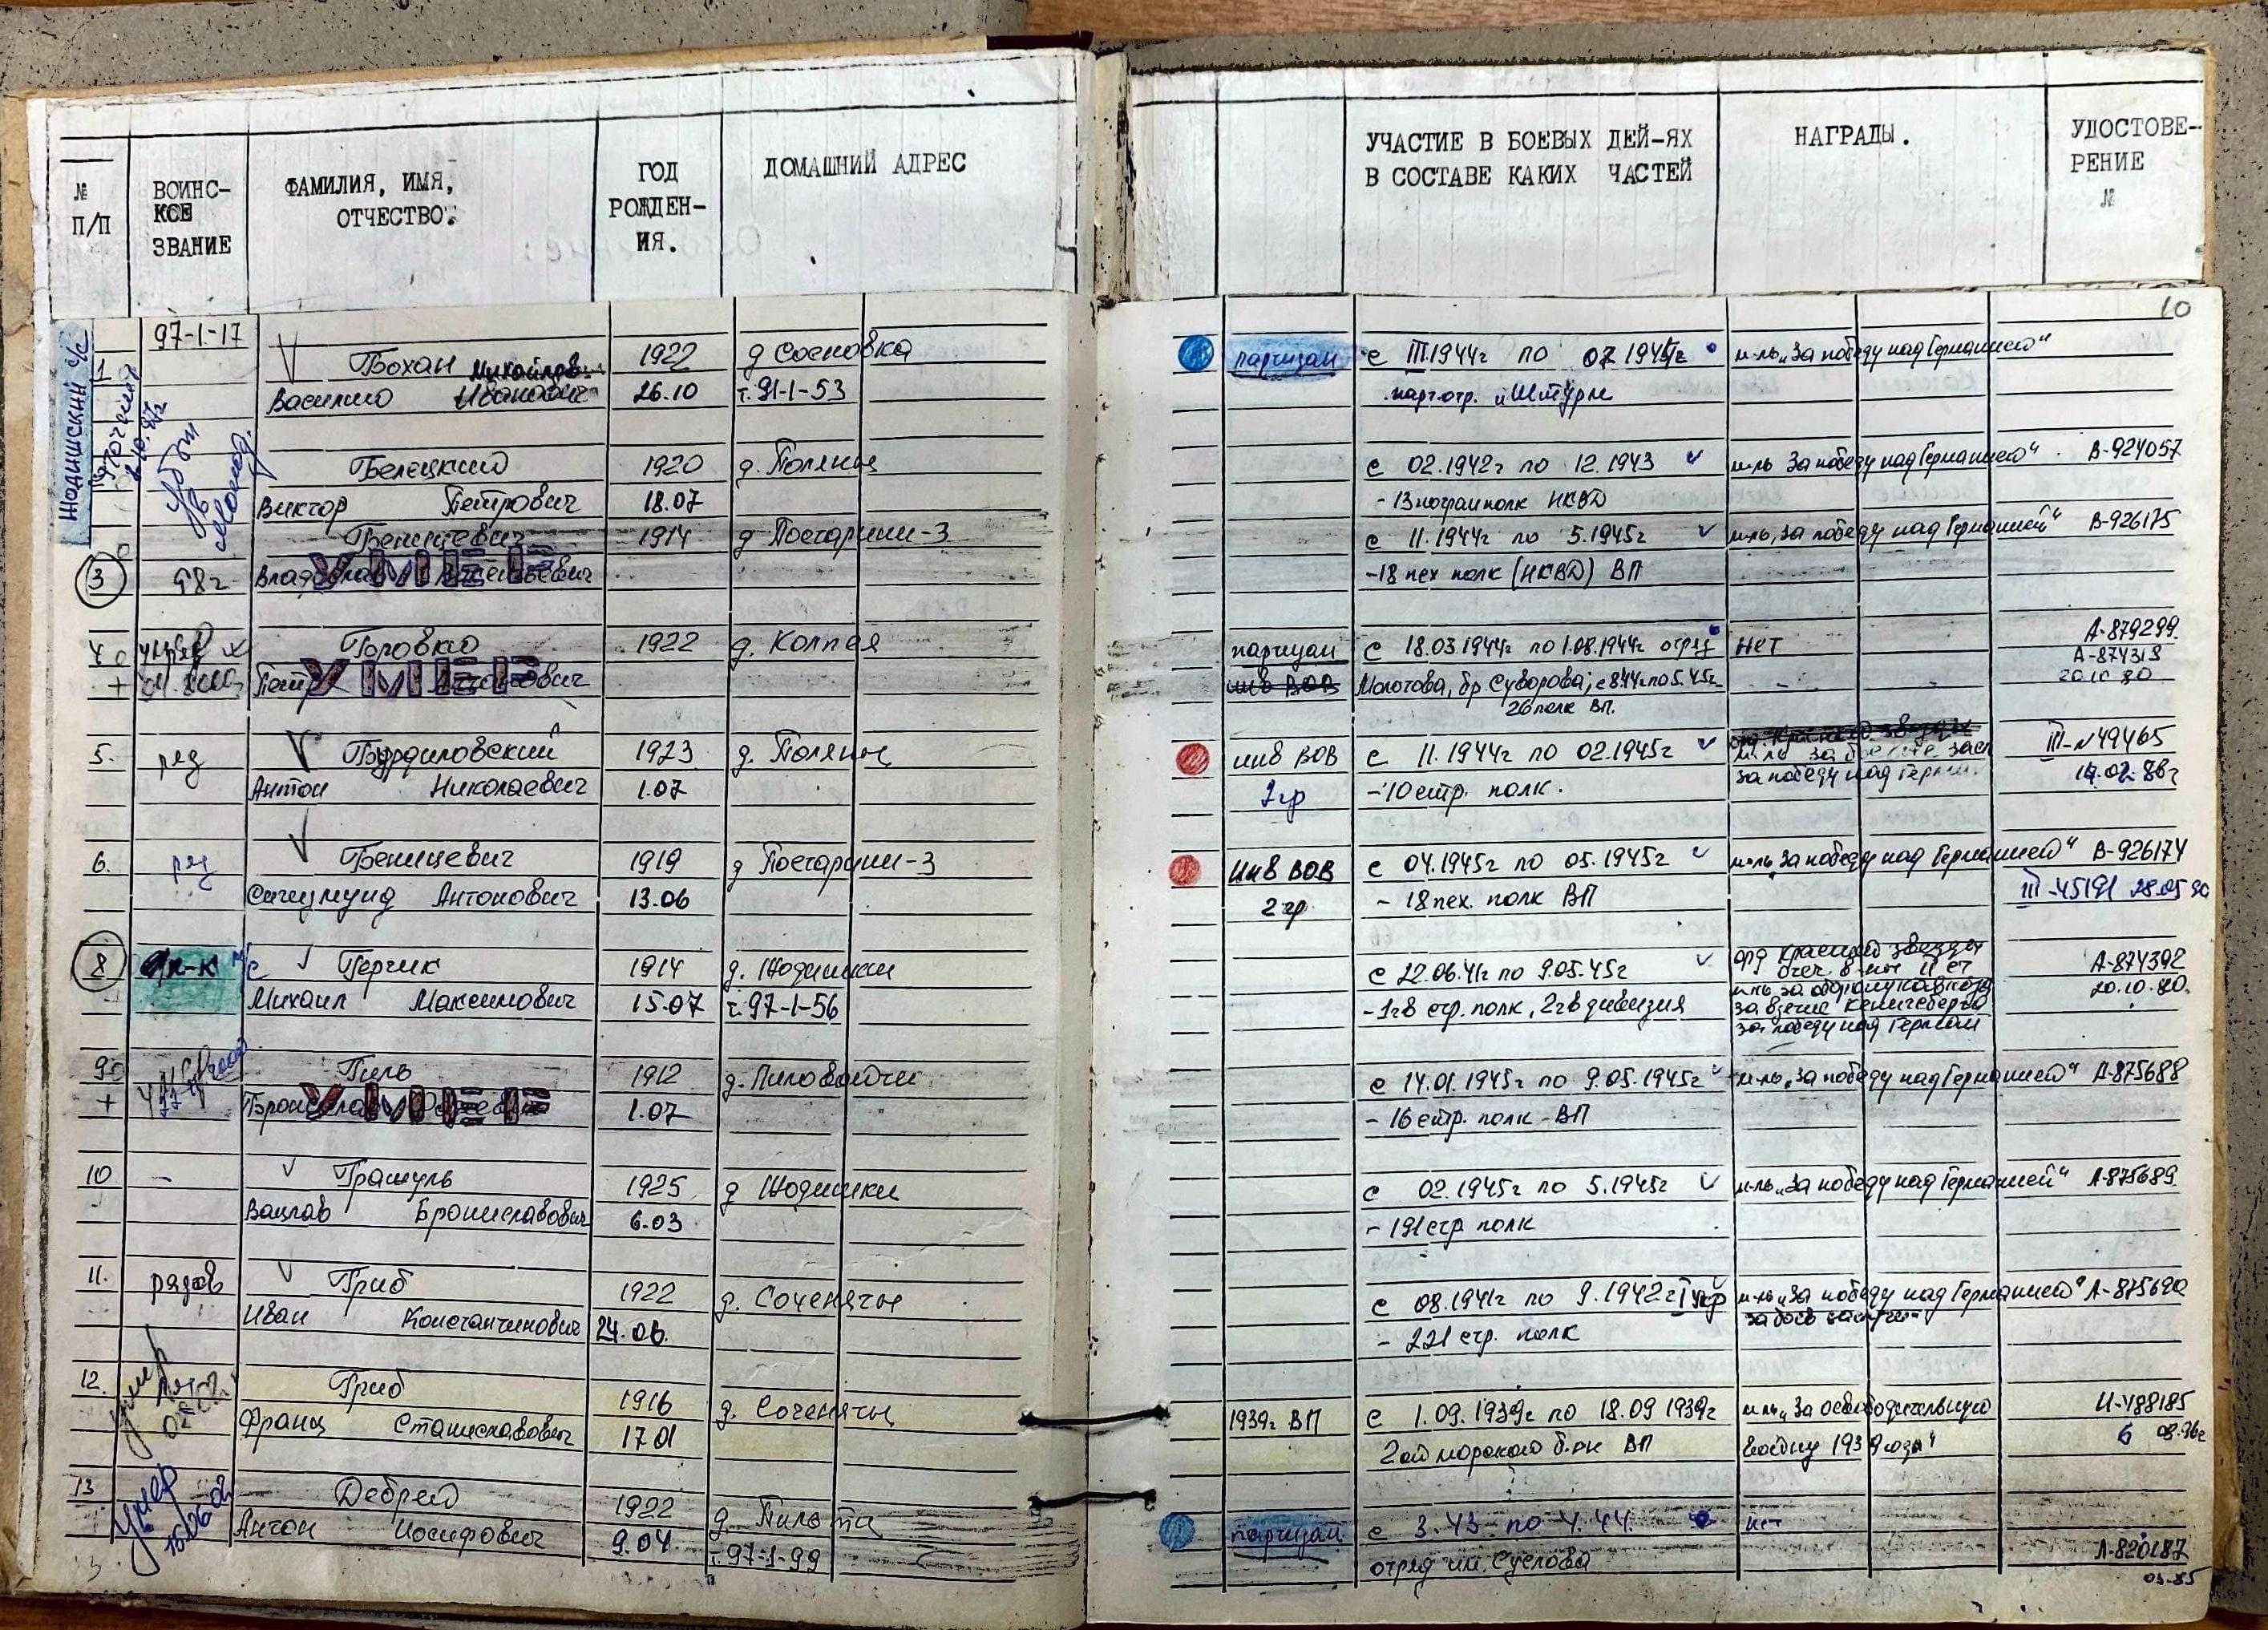 № П/П
ВОИНСКОЕ ЗВАНИЕ
ФАМИЛИЯ, ИМЯ, ОТЧЕСТВО.
ГОД РОЖДЕНИЯ.
ДОМАШНИЙ АДРЕС
УЧАСТИЕ В БОЕВЫХ ДЕЙ-ЯХ
В СОСТАВЕ КАКИХ ЧАСТЕЙ
НАГРАДЫ.
УДОСТОВЕ-
РЕНИЕ
№
10
Жодишский с/с
97-1-17
1 Бохан Михайлов. 1922 д Сосновка партизан с III.1944г по 07.1944г м-ль „За победу над Германией“
Василий Иванович 26.10 т.91-1-53 парт.отр. „Штурм
Белецкий 1920 д. Поляны с 02.1942г по 12.1943 м-ль За победу над Германией“ В-924057
Виктор Петрович 18.07 -13 погранполк НКВД
Беницевич 1914 д Постарини-3 с 11.1944г по 5.1945г м-ль „За победу над Германией“ В-926175
3 98г УМЕР -18 пех полк (НКВД) ВП
4 Боровко 1922 д. Колпея партизан с 18.03.1944г по 1.08.1944г отряд нет А-879299
+ Петр УМЕР Антонович инв ВОВ Молотова, бр. Суворова; с 8.44г по 5.45г А-874313
26 полк ВП. 20.10.80
5. ряд Бурдиловский 1923 д. Поляны инв ВОВ с 11.1944г по 02.1945г м-ль за боевые засл III-№49465
Антон Николаевич 1.07 2гр -10 стр. полк. за победу над Герман. 14.02.86г
6. ряд Беницевич 1919 д Постарини-3 инв ВОВ с 04.1945г по 05.1945г м-ль „За победу над Германией“ В-926174
Сигизмунд Антонович 13.06 2 гр - 18 пех. полк ВП III-45191 28.05.90
8 Герчик 1914 д. Жодишки с 22.06.41г по 9.05.45г орд Красной звезды А-874392
Михаил Максимович 15.07 т.97-1-56 -1гв стр. полк, 2гв дивизия Отеч. в-ны II ст 20.10.80.
м-ль за оборону Кавказа
за взятие Кенигсберга
за победу над Герман
9 Гиль 1912 д. Пиловойти с 14.01.1945г по 9.05.1945г м-ль „За победу над Германией“ А-875688
+ УМЕР 1.07 - 16 стр. полк - ВП
10 - Грашуль 1925 д Жодишки с 02.1945г по 5.1945г м-ль „За победу над Германией“ А-875689
Вацлав Брониславович 6.03 - 191 стр полк
11. рядов Гриб 1922 д. Соченяты с 08.1941г по 9.1942г I Укр м-ль „За победу над Германией“ А-875690
Иван Константинович 24.06. - 221 стр. полк за боев заслуги
12. умер Гриб 1916 д. Соченяты 1939г ВП с 1.09.1939г по 18.09 1939г м-ль „За освободительную И-488185
Франц Станиславович 17 01 2ой морской б-он ВП войну 1939 года“ 6 08.96г
13 Умер Дебрей 1922 д. Пильты партизан с 3.43 по 4.44. нет
Антон Иосифович 9.04 т.97-1-99 отряд им. Суслова А-820187
03-85